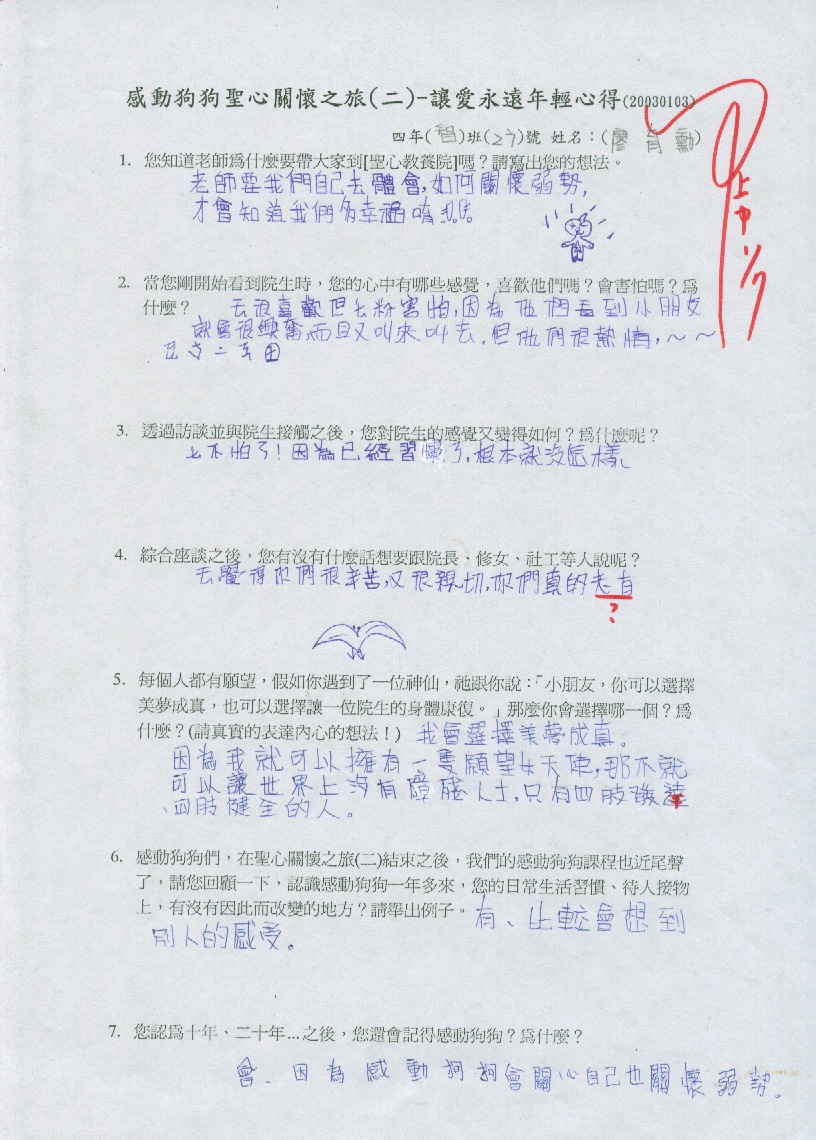 感動狗狗聖心關懷之旅(二)-讓愛永遠年輕心得(20030103)
四年(智)班(27)號 姓名:(廖 育 勳)
上中 1/7
1. 您知道老師為什麼要帶大家到[聖心教養院]嗎?請寫出您的想法。
老師要我們自己去體會,如何關懷弱勢,
才會知道我們多幸福唷
2. 當您剛開始看到院生時,您的心中有哪些感覺,喜歡他們嗎?會害怕嗎?為
什麼? ㄊ很喜歡但ㄊ粉害怕,因為他們看到小朋友
就會很興奮而且又叫來叫去,但他們很熱情,~~
3. 透過訪談並與院生接觸之後,您對院生的感覺又變得如何?為什麼呢?
ㄊ不怕了!因為已經習慣了,根本就沒怎樣、
4. 綜合座談之後,您有沒有什麼話想要跟院長、修女、社工等人說呢?
ㄊ覺得你們很辛苦,又很親切,你們真的
?
5. 每個人都有願望,假如你遇到了一位神仙,祂跟你說:「小朋友,你可以選擇
美夢成真,也可以選擇讓一位院生的身體康復。」那麼你會選擇哪一個?為
什麼?(請真實的表達內心的想法!) 我會選擇美夢成真。
因為我就可以擁有一隻願望女天使,那不就
可以讓世界上沒有障礙人士,只有四肢
、四肢健全的人。
6. 感動狗狗們,在聖心關懷之旅(二)結束之後,我們的感動狗狗課程也近尾聲
了,請您回顧一下,認識感動狗狗一年多來,您的日常生活習慣、待人接物
上,有沒有因此而改變的地方?請舉出例子。 有、比較會想到
別人的感受。
7. 您認為十年、二十年...之後,您還會記得感動狗狗?為什麼?
會、因為感動狗狗會關心自己也關懷弱勢。